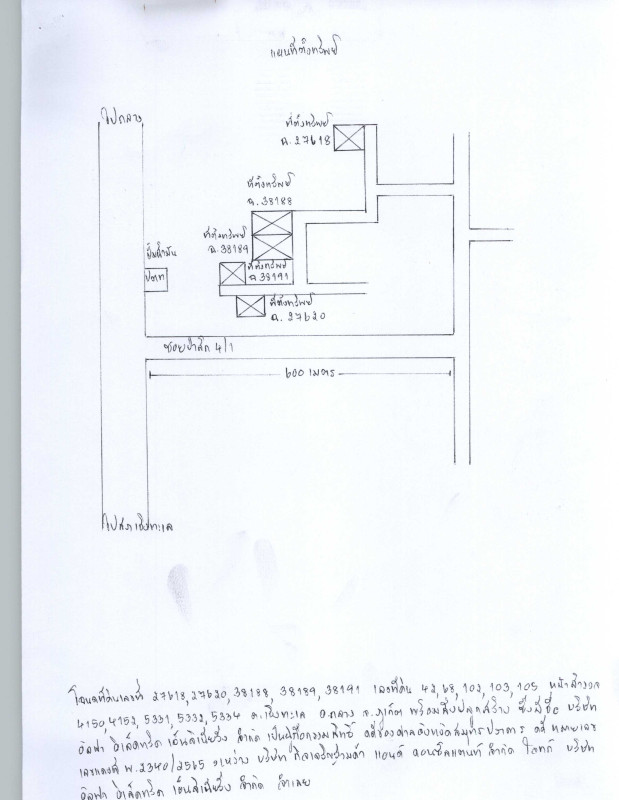 แผนที่ตั้งทรัพย์
ไปถลาง
ที่ตั้งทรัพย์
ฉ.27618
ที่ตั้งทรัพย์
ฉ.38188
ที่ตั้งทรัพย์
ฉ.38189
ปั๊มน้ำมัน
ปตท
ที่ตั้งทรัพย์
ฉ.38191
ที่ตั้งทรัพย์
ฉ.27620
ซอยป่าสัก 4/1
600 เมตร
ไปเชิงทะเล
โฉนดที่ดินเลขที่ 27618,27620,38188,38189,38191 เลขที่ดิน 42,68,102,103,105 หน้าสำรวจ
4150,4152,5331,5332,5334 ต.เชิงทะเล อ.ถลาง จ.ภูเก็ต พร้อมสิ่งปลูกสร้าง ซึ่งมีชื่อ บริษัท
อัลฟา อิเล็คทริค เอ็นจิเนียริ่ง จำกัด เป็นผู้ถือกรรมสิทธิ์ คดีของศาลจังหวัดสมุทรปราการ คดี หมายเลข
แดงที่ พ.2340/2565 ระหว่าง บริษัท แอนด์ คอนซัลแตนท์ จำกัด โจทก์ บริษัท
อัลฟา อิเล็คทริค เอ็นจิเนียริ่ง จำกัด จำเลย